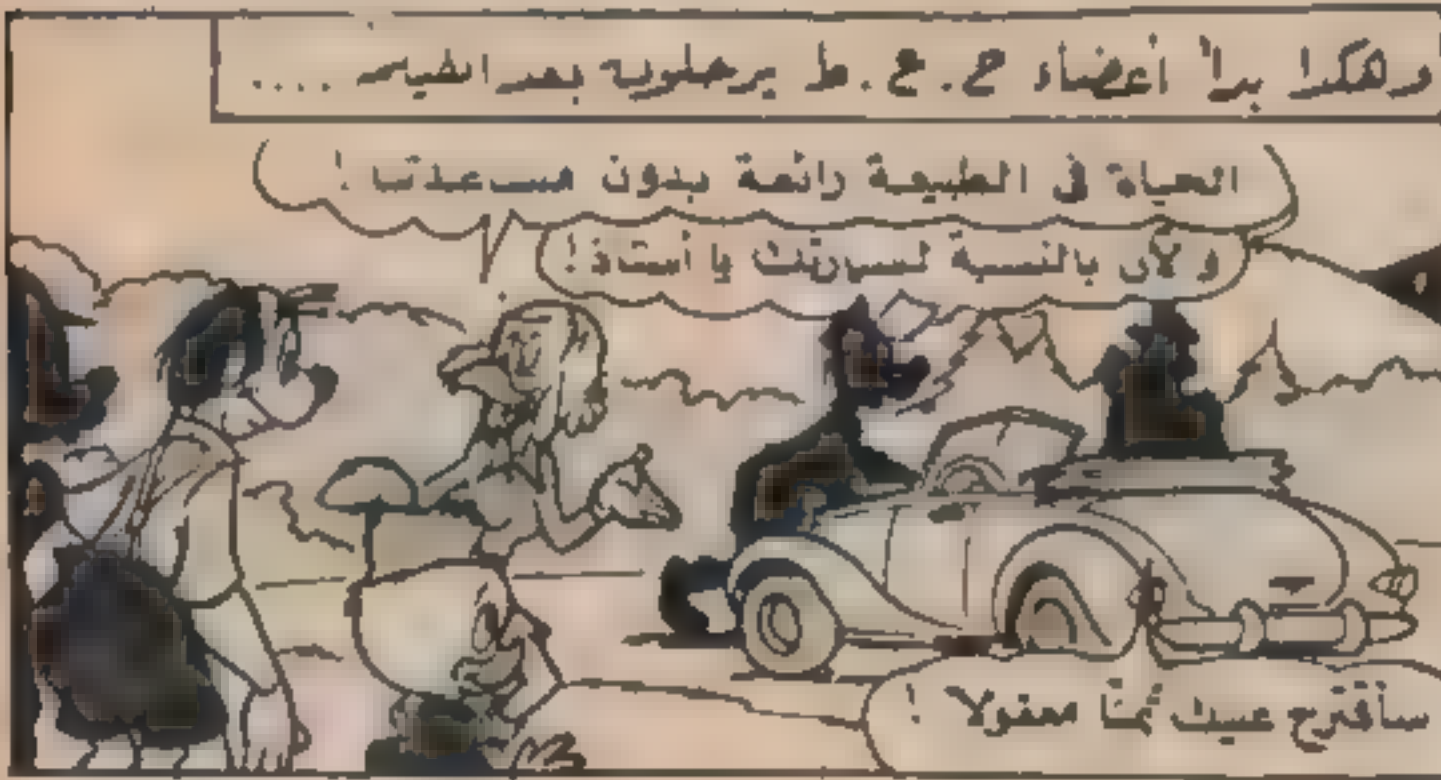 وهكذا بدأ أعضاء ح.ح.ط يرحلون بعد الفيلم ....
الحياة في الطبيعة رائعة بدون مساعدتنا !
والآن بالنسبة لسيارتك يا أستاذ !
سأقترح عليك ثمنًا معقولا !